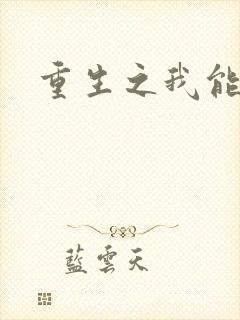 重生之我能
藍雲天